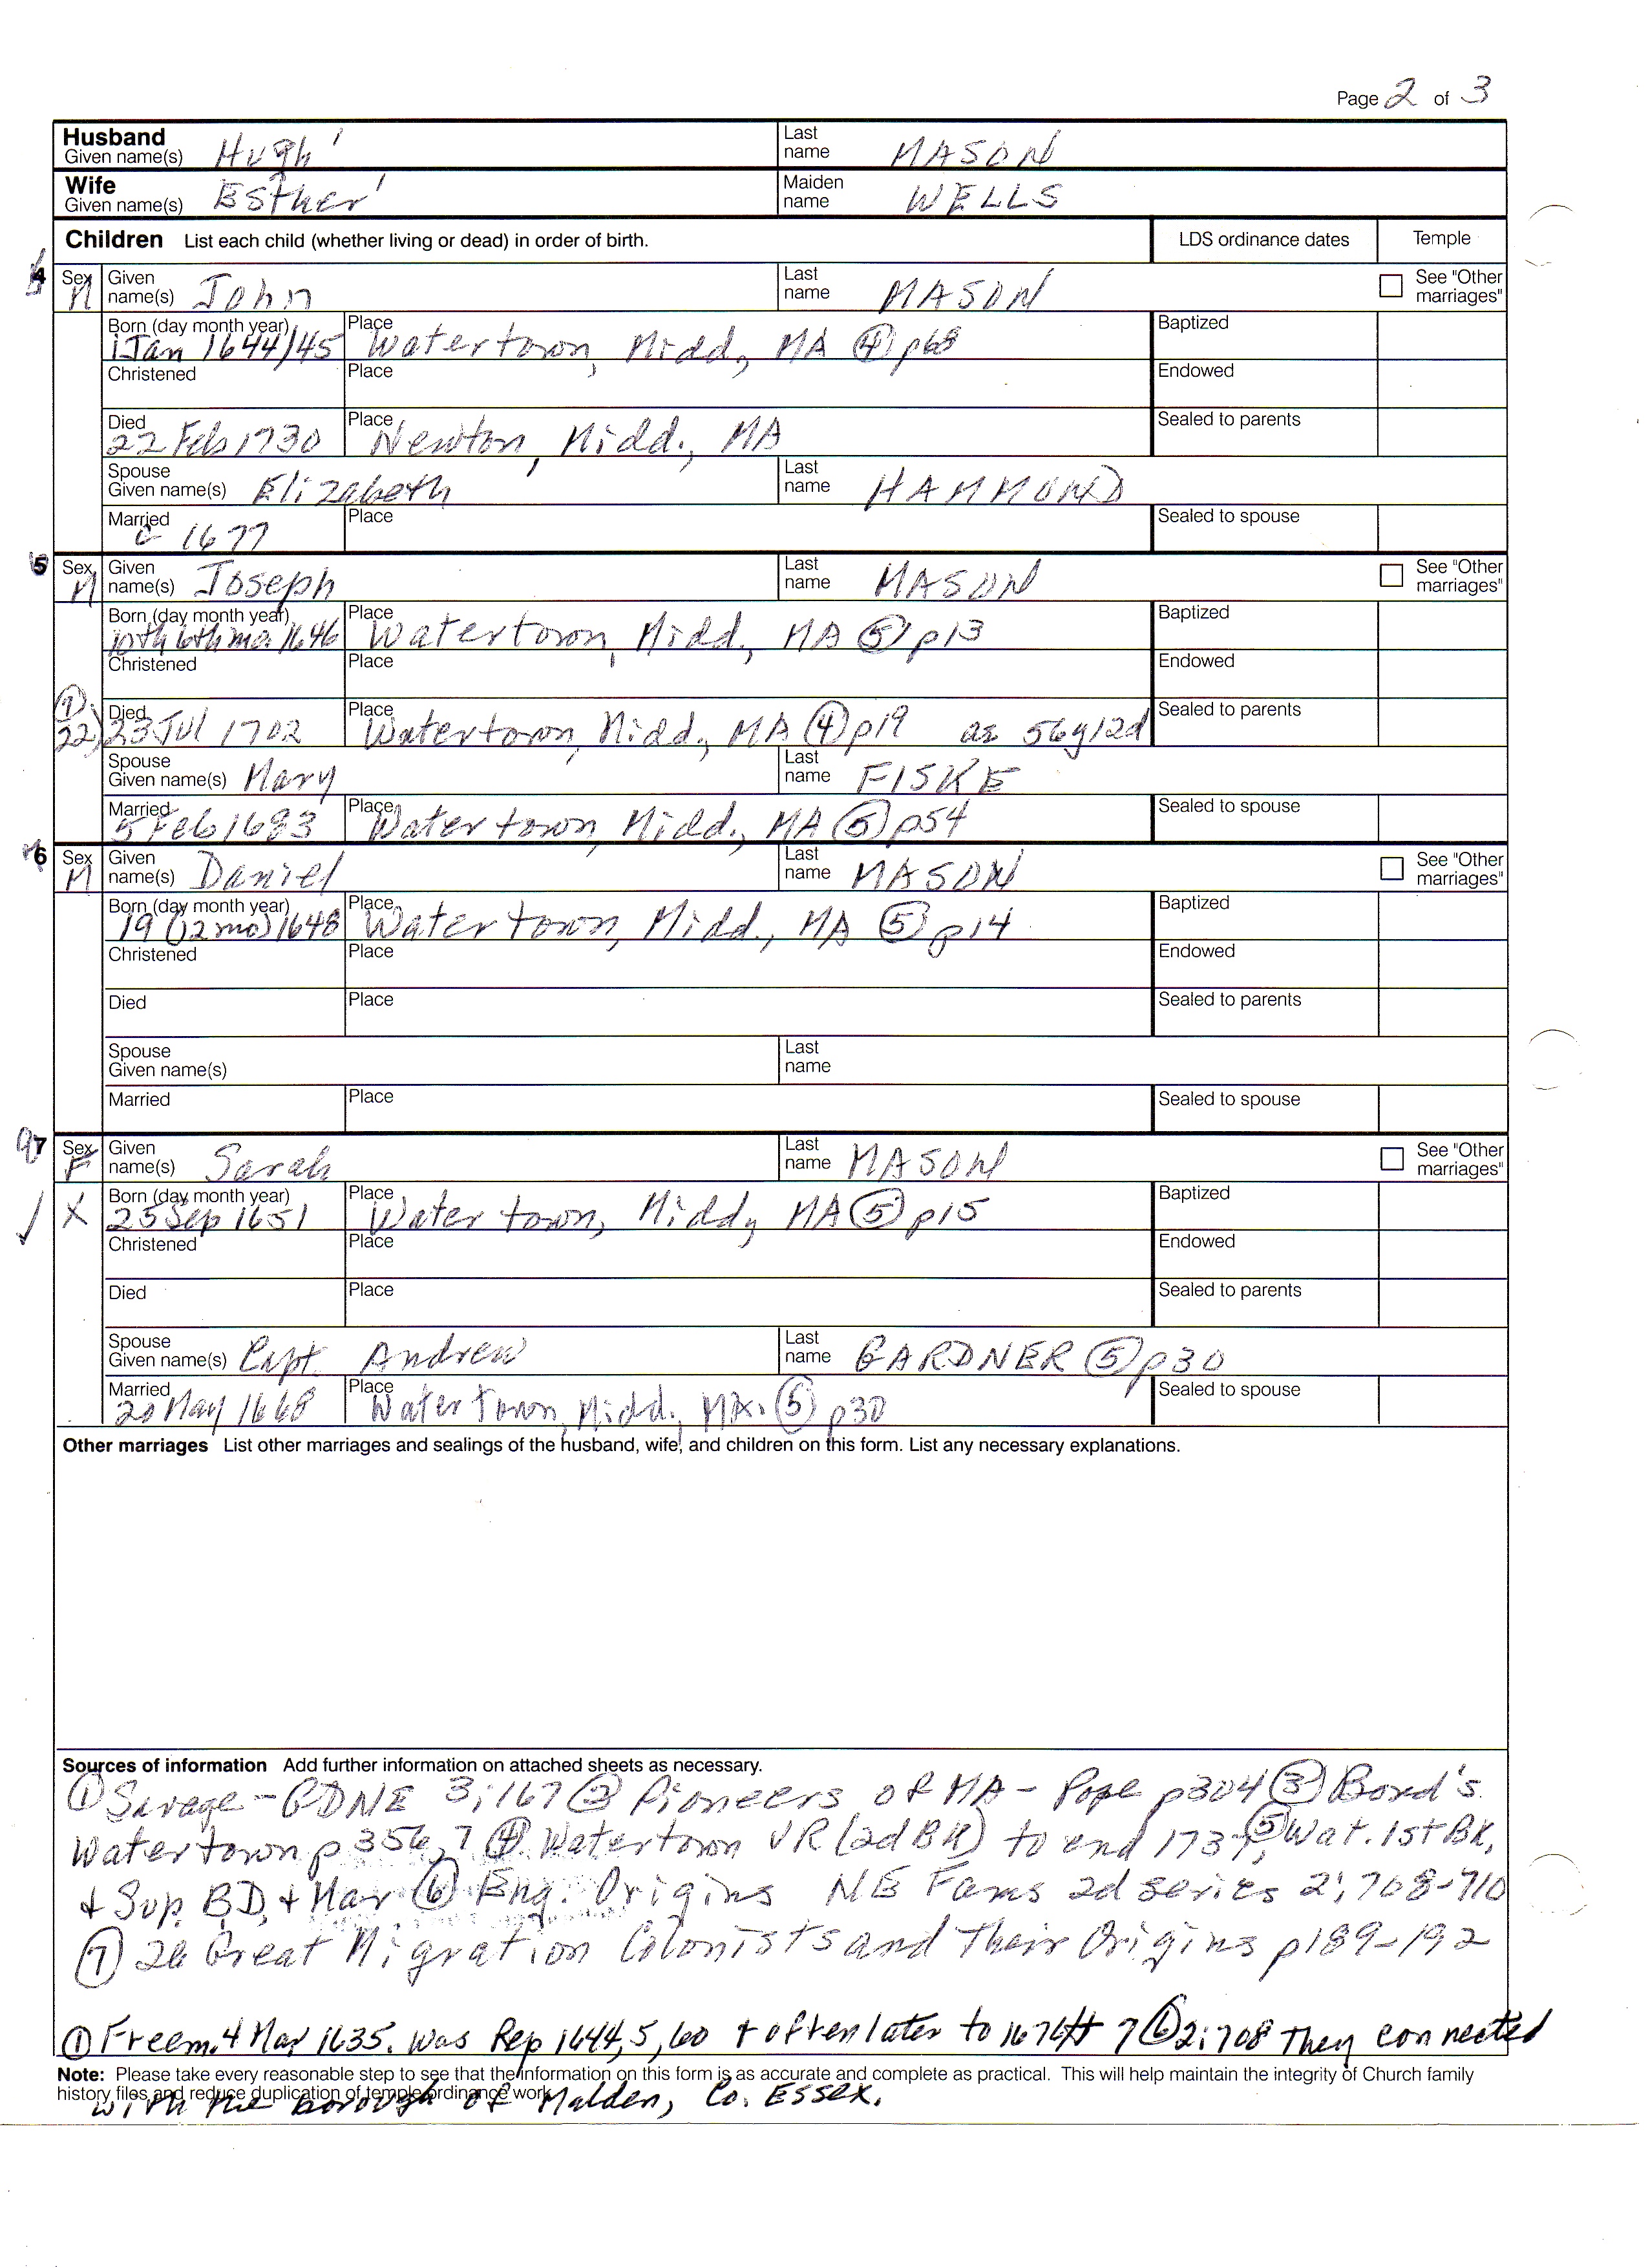 Page 2 of 3
Husband Given name(s) Hugh' Last name MASON
Wife Given name(s) Esther' Maiden name WELLS
Children List each child (whether living or dead) in order of birth. LDS ordinance dates Temple
4 Sex M Given name(s) John Last name MASON See "Other marriages"
Born (day month year) 1 Jan 1644/45 Place Watertown, Midd., MA ④ p68 Baptized
Christened Place Endowed
Died 22 Feb 1730 Place Newton, Midd., MA Sealed to parents
Spouse Given name(s) Elizabeth Last name HAMMOND
Married c 1677 Place Sealed to spouse
5 Sex M Given name(s) Joseph Last name MASON See "Other marriages"
Born (day month year) 10th 6th mo. 1646 Place Watertown, Midd., MA ⑤ p13 Baptized
Christened Place Endowed
Died 22) 23 Jul 1702 Place Watertown, Midd., MA ④ p19 ae 56y12d Sealed to parents
Spouse Given name(s) Mary Last name FISKE
Married 5 Feb 1683 Place Watertown, Midd., MA ⑤ p54 Sealed to spouse
6 Sex M Given name(s) Daniel Last name MASON See "Other marriages"
Born (day month year) 19 (12 mo) 1648 Place Watertown, Midd., MA ⑤ p14 Baptized
Christened Place Endowed
Died Place Sealed to parents
Spouse Given name(s) Last name
Married Place Sealed to spouse
9 7 Sex F Given name(s) Sarah Last name MASON See "Other marriages"
X Born (day month year) 25 Sep 1651 Place Watertown, Midd, MA ⑤ p15 Baptized
Christened Place Endowed
Died Place Sealed to parents
Spouse Given name(s) Capt. Andrew Last name GARDNER ⑤ p30
Married 20 May 1668 Place Watertown, Midd., MA. ⑤ p30 Sealed to spouse
Other marriages List other marriages and sealings of the husband, wife, and children on this form. List any necessary explanations.
Sources of information Add further information on attached sheets as necessary.
① Savage - GDNE 3;167 ② Pioneers of MA - Pope p304 ③ Bond's
Watertown p 356,7 ④ Watertown VR (2d BK) to end 1737, ⑤ Wat. 1st BK,
+ Sup. B,D, + Mar ⑥ Eng. Origins NE Fams 2d series 2;708-710
⑦ 26 Great Migration Colonists and Their Origins p189-192
① Freem. 4 Mar 1635. Was Rep 1644,5,60 + often later to 1676 + 7 ⑥ 2:708 They connected
Note: Please take every reasonable step to see that the information on this form is as accurate and complete as practical. This will help maintain the integrity of Church family
history files and reduce duplication of temple ordinance work.
with the borough of Malden, Co. Essex.